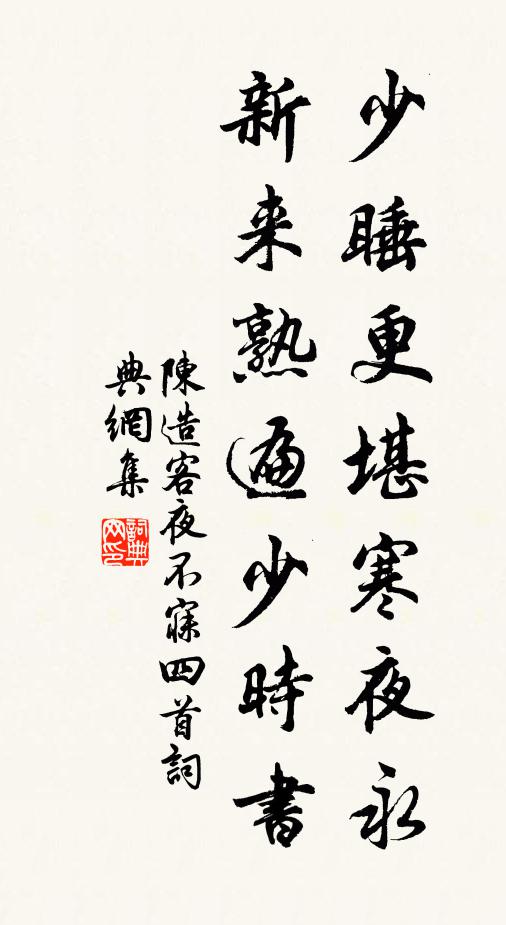 少睡更堪寒夜永
新来熟遍少時書
陳造客夜不寐四首詞
典網集
詞典网印